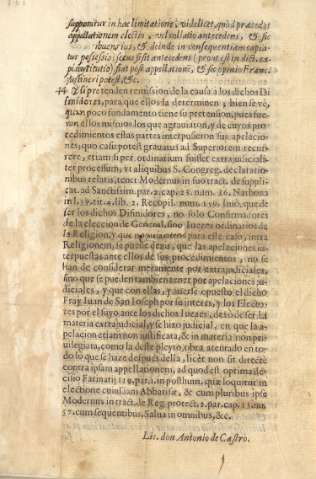 supponitur in hac limitatione, videlicet, quòd præcedat
appellationem electio, vel collatio antecedens, & sic
& deinde in consequentiam capia-
tur possessio, secus si sit antecedens (prout est in dict. ex-
post appellationem, & sic opinio Franc.
potest, &c.
44 Y si pretenden remission de la causa a los dichos Di-
finidores, para que ellos la determinen, bien se vè,
quan poco fundamento tiene su pretension, pues fue-
ron ellos mismos los que agrauaron, y de cuyos pro-
cedimientos estas partes interpusieron sus apelacio-
nes, quo casu potest grauatus ad Superiorem recurr-
ere, etiam si per ordinarium fuisset extrajudiciali-
ter processum, vt aliquibus S. Congreg. declaratio-
nibus relatis, tenet Modernus in suo tract. de suppli-
cat. ad Sanctissim. par. 2. cap. 25. num. 16. Narbona
in l. tit. 4. lib. 2. Recopil. num. 159. sino, que de
ser los dichos Difinidores, no solo Confirmadores
de la eleccion de General, sino Iuezes ordinarios de
la Religion, y que para este caso, intra
Religionem, se puede dezir, que las apelaciones in-
terpuestas ante ellos de sus procedimientos, no se
han de considerar meramente por extrajudiciales,
sino que se pueden tambien tener por apelaciones ju-
diciales, y que con ellas, y auerse opuesto el dicho
Fray Iuan de San Ioseph por su interes, y los Electo-
res por el suyo ante los dichos Iuezes, dexò de ser la
materia extrajudicial, y se hizo judicial, en que la a-
pelacion etiam non iustificata, & in materia non pri-
uilegiata, como la deste pleyto, obra atentado en to-
do lo que se haze despues della, licèt non sit directè
contra ipsam appellationem, ad quod est optima de-
cisio Farinatij par. 1. in posthum. quæ loquitur in
electione cuiusdam Abbatissæ, & cum pluribus ipse
Modernus in tract. de Reg. protect. 2. par. cap.
57. cum sequentibus. Salua in omnibus, &c.
Lic. don Antonio de Castro.